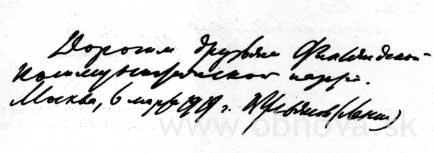 Дорогим друзьям Финляндской
Коммунистической парт.
Москва, 6 марта 1919 г. В. Ульянов (Ленин)
www.obnova.sk